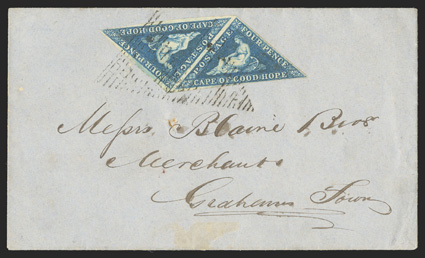 CAPE OF GOOD HOPE
POSTAGE
FOUR PENCE
POSTAGE
FOUR PENCE
CAPE OF GOOD HOPE
Messrs. Blaine Bros
Merchants
Grahams Town